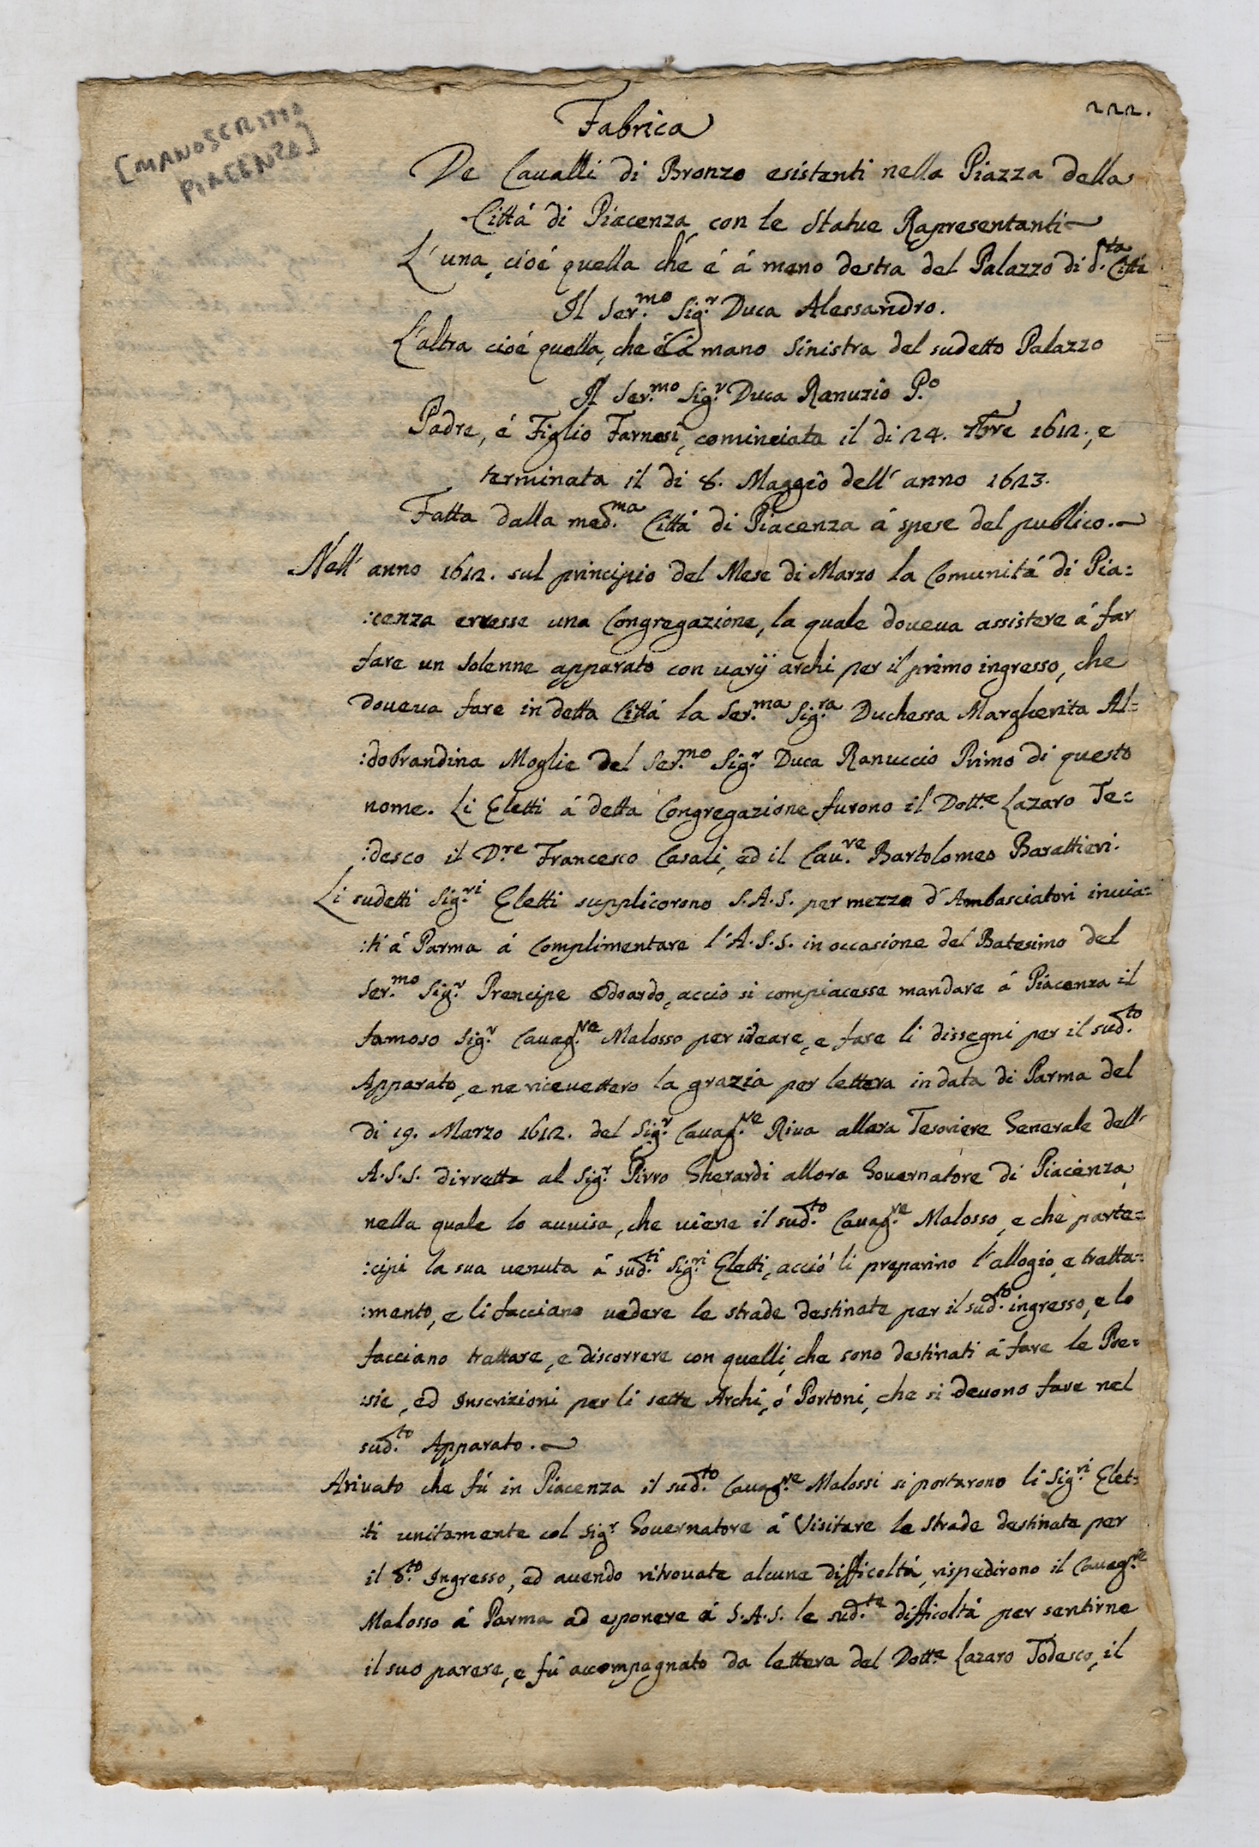 222.
[MANOSCRITTO
PIACENZA]
Fabrica
De Caualli di Bronzo esistenti nella Piazza della
Cittá di Piacenza con le Statue Rapresentanti
L'una, cioé quella ché é á mano destra del Palazzo di d.ta Cittá
Il Ser.mo Sig.r Duca Alessandro.
L'altra cioé quella, che é á mano sinistra del sudetto Palazzo
Il Ser.mo Sig.r Duca Ranuzio P.o
Padre, é Figlio Farnesi, cominciata il di 24. 7bre 1612., e
terminata il di 8. Maggio dell' anno 1623.
Fatta dalla med.ma Cittá di Piacenza á spese del publico.
Nell' anno 1612. sul principio del Mese di Marzo la Comunitá di Pia=
:cenza eresse una Congregazione, la quale doueua assistere á far
fare un solenne apparato con varÿ archi per il primo ingresso, che
doueua fare in detta Cittá la Ser.ma Sig.ra Duchessa Margherita Al=
:dobrandina Moglie del Ser.mo Sig.r Duca Ranuccio Primo di questo
nome. Li Eletti á detta Congregazione furono il Dott.e Lazaro Te=
:desco il D.re Francesco Casali, ed il Cau.re Bartolomeo Barattieri.
Li sudetti Sig.ri Eletti supplicorono S.A.S. per mezzo d'Ambasciatori inuia=
:ti á Parma á Complimentare l'A.S.S. in occasione del Batesimo del
Ser.mo Sig.r Prencipe Odoardo, accio si compiacesse mandare á Piacenza il
famoso Sig.r Cauag.re Malosso per ideare, e fare li dissegni per il sud.to
Apparato, e ne riceuettero la grazia per lettera in data di Parma del
di 19. Marzo 1612. del Sig.r Cauag.re Riua allora Tesoriere Generale dell'
A.S.S. dirretta al Sig.r Pirro Gherardi allora Gouernatore di Piacenza,
nella quale lo auuisa, che uiene il sud.to Cauag.re Malosso, e che parte=
:cipi la sua uenuta á sud.ti Sig.ri Eletti, acció li preparino l'allogio, e tratta=
:mento, e li facciano uedere le strade destinate per il sud.to ingresso, e lo
facciano trattare, e discorrere con quelli, che sono destinati á fare le Poe=
:sie, ed Inscrizioni per li sette Archi, ó Portoni, che si deuono fare nel
sud.to Apparato.
Ariuato che fú in Piacenza il sud.to Cauag.re Malossi si portarono li Sig.ri Elet=
:ti unitamente col Sig.r Gouernatore á Visitare le Strade destinate per
il d.to Ingresso, ed auendo ritrouate alcune difficoltá, rispedirono il Cauag.re
Malosso á Parma ad esponere á S.A.S. le sud.te difficoltá per sentirne
il suo parere, e fú accompagnato da lettera del Dott.e Lazaro Todesco, il